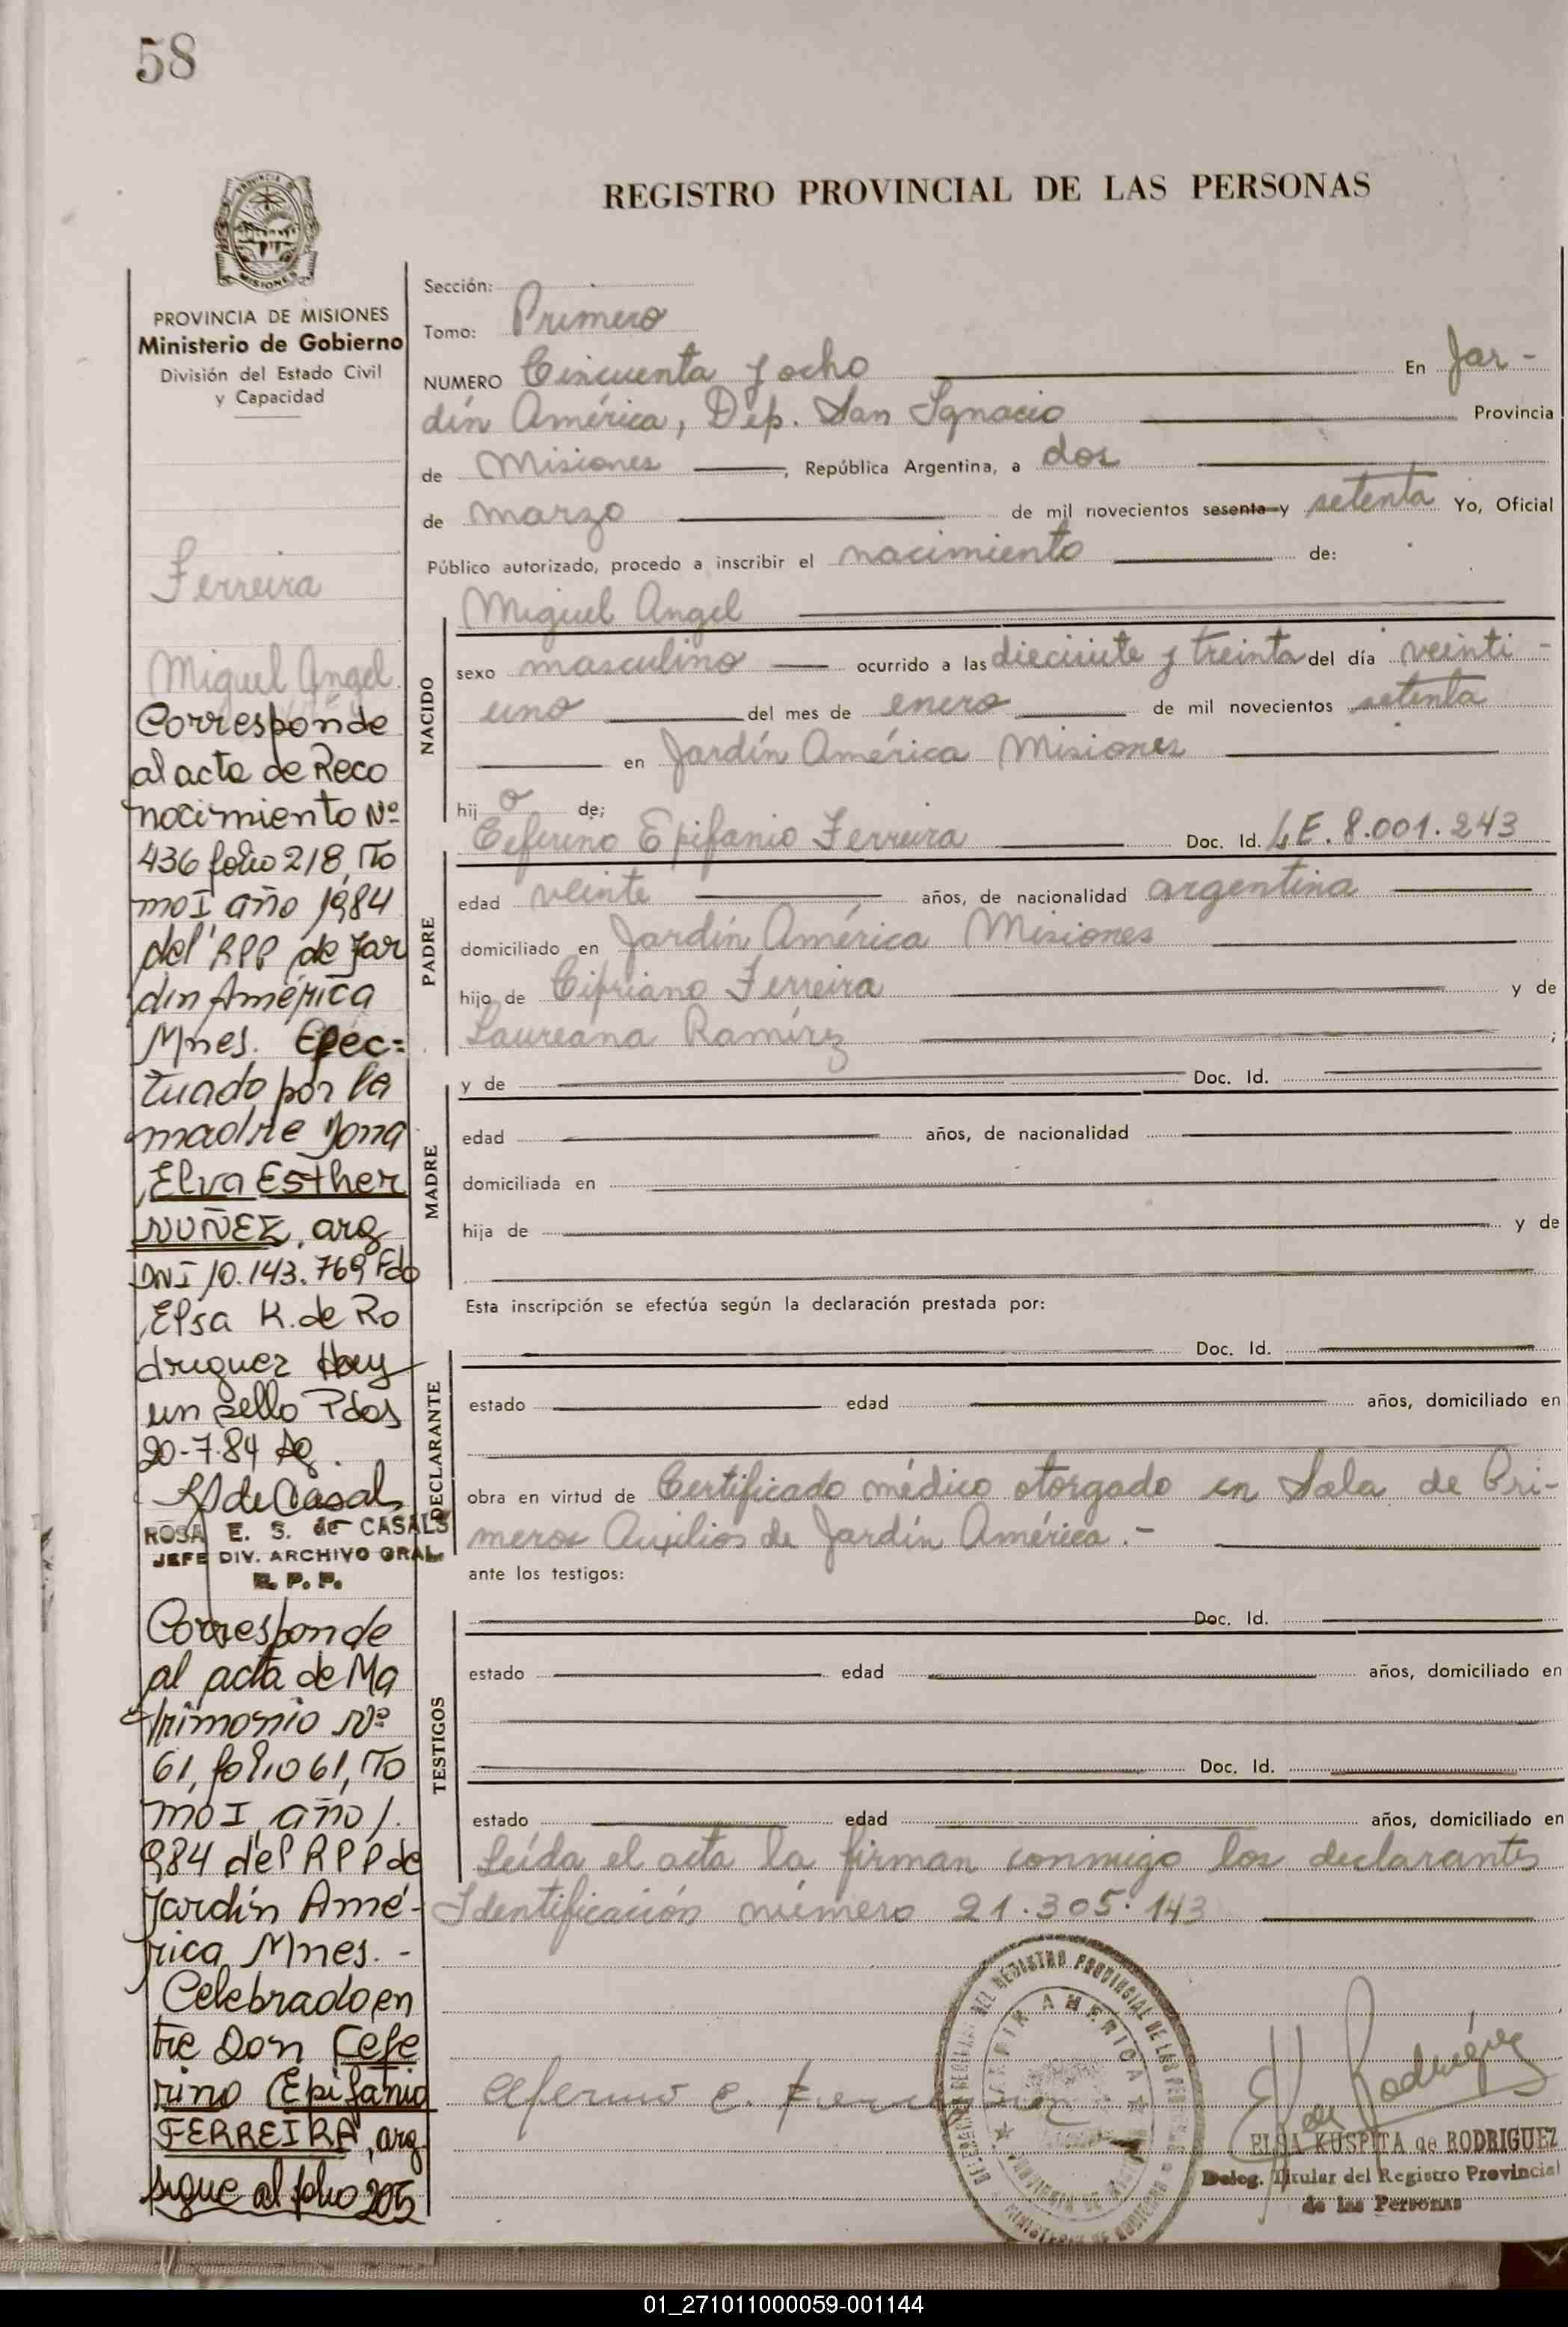 58
REGISTRO PROVINCIAL DE LAS PERSONAS
MISIONES
PROVINCIA DE MISIONES
Ministerio de Gobierno
División del Estado Civil
y Capacidad
Ferreira
Miguel Angel
Corresponde
al acta de Reco
nocimiento Nº
436 folio 218, To
mo I año 1984
del RPP de Jar
din América
Mnes. Efec=
tuado por la
madre Dona
Elva Esther
NUÑEZ, arg
DNI 10.143.769 Fdo
Elsa K. de Ro
driguez Hay
un sello Pdos
20-7-84
de Casals
ROSA E. S. de CASALS
JEFE DIV. ARCHIVO GRAL.
R. P. P.
Corresponde
al acta de Ma
trimonio Nº
61, folio 61, To
mo I, año 1.
984 del RPP de
Jardín Amé-
rica Mnes. -
Celebrado en
tre Don Cefe
rino Epifanio
FERREIRA, arg
sigue al folio 205
Sección:
Tomo: Primero
NUMERO Cincuenta y ocho En Jar-
dín América, Dep. San Ignacio Provincia
de Misiones, República Argentina, a dos
de marzo de mil novecientos sesenta y setenta Yo, Oficial
Público autorizado, procedo a inscribir el nacimiento de:
Miguel Angel
NACIDO
sexo masculino ocurrido a las diecisiete y treinta del día veinti-
uno del mes de enero de mil novecientos setenta
en Jardín América Misiones
hij o de;
Ceferino Epifanio Ferreira Doc. Id. L.E. 8.001.243
PADRE
edad veinte años, de nacionalidad argentina
domiciliado en Jardín América Misiones
hijo de Cipriano Ferreira y de
Laureana Ramírez ;
y de Doc. Id.
MADRE
edad años, de nacionalidad
domiciliada en
hija de y de
Esta inscripción se efectúa según la declaración prestada por:
Doc. Id.
DECLARANTE
estado edad años, domiciliado en
obra en virtud de Certificado médico otorgado en Sala de Pri-
meros Auxilios de Jardín América.-
ante los testigos:
Doc. Id.
TESTIGOS
estado edad años, domiciliado en
Doc. Id.
estado edad años, domiciliado en
Leída el acta la firman conmigo los declarantes
Identificación número 21.305.143
Ceferino E. Ferreira
DEL REGISTRO PROVINCIAL DE LAS PERSONAS
JARDIN AMERICA
PROVINCIA DE MISIONES
MINISTERIO DE GOBIERNO
E K de Rodriguez
ELSA KUSPITA de RODRIGUEZ
Deleg. Titular del Registro Provincial
de las Personas
01_271011000059-001144